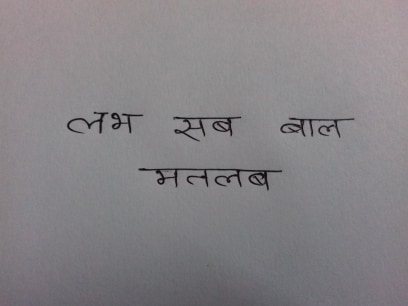 लभ सब बाल
मतलब